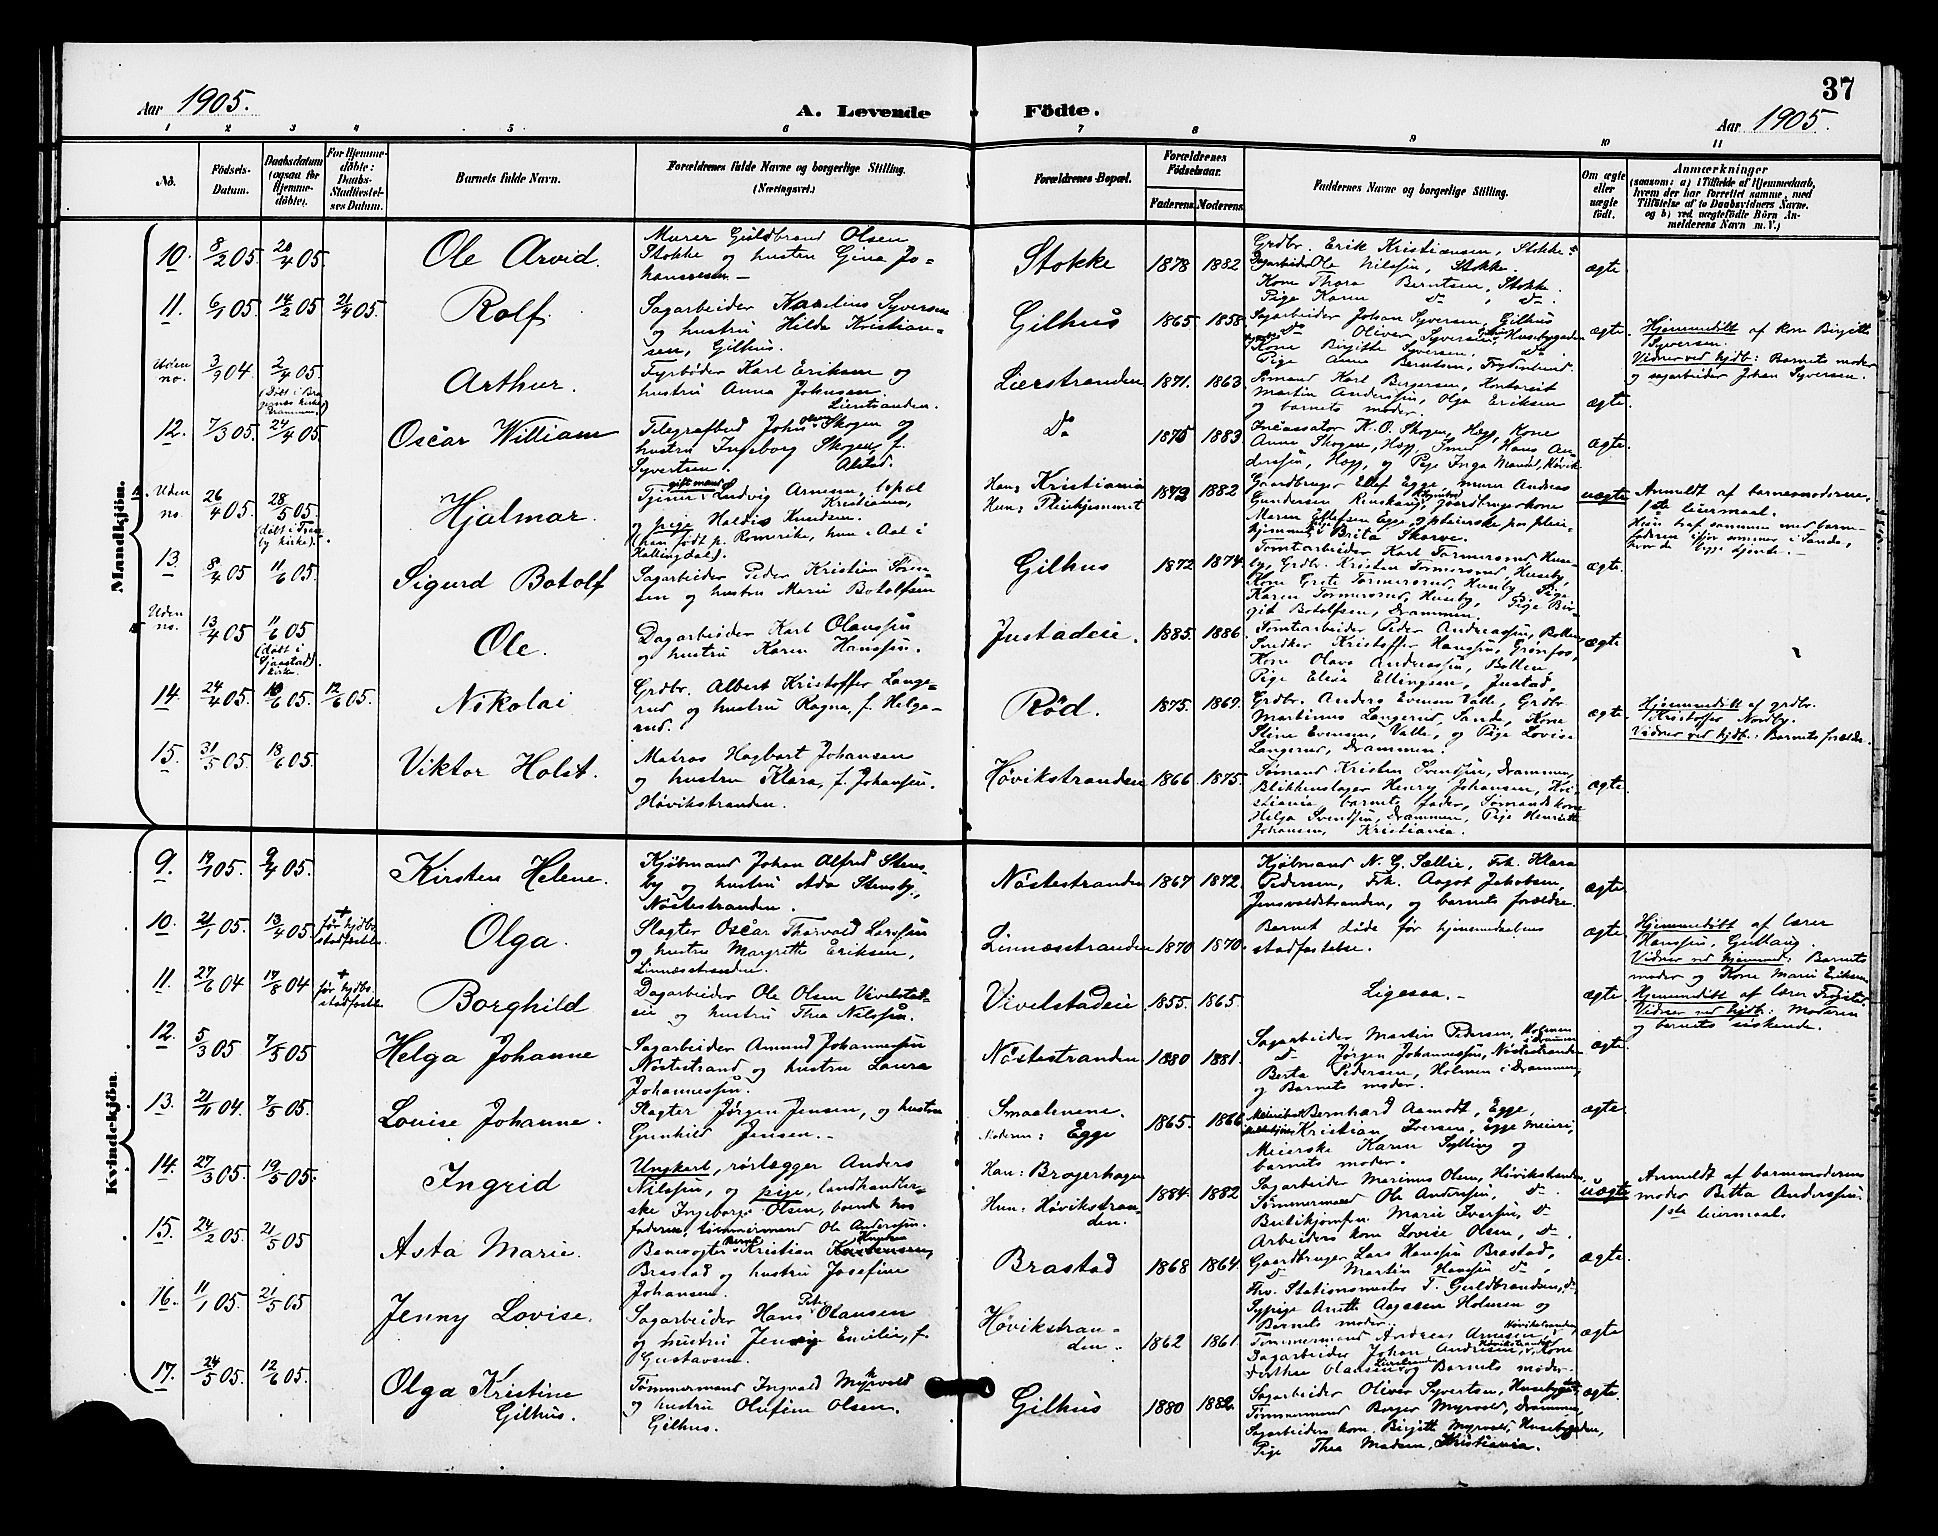 37
Aar 1905.
A. Levende Födte.
Aar 1905.
1 2 3 4 5 6 7 8 9 10 11
No.
Födsels-Datum.
Daabsdatum (ogsaa for Hjemme-döbte).
For Hjemme-döbte: Daabs-Stadfæstelses Datum.
Barnets fulde Navn.
Forældrenes fulde Navne og borgerlige Stilling. (Næringsvei.)
Forældrenes Bopæl.
Forældrenes Födselsaar.
Faderens Moderens
Faddernes Navne og borgerlige Stilling.
Om ægte eller uægte födt.
Anmærkninger
(saasom: a) i Tilfælde af Hjemmedaab,
hvem der har forrettet samme, med
Tilföielse af to Daabsvidners Navne.
og b) ved uægtefödte Börn An-
melderens Navn m. V.)
Mandkjön.
10. 8/2 05. 20/4 05. Ole Arvid.
Murer Guldbrand Olsen
Stokke og hustru Gina Jo-
hannesen —
Stokke 1878 1882
Grdbr. Erik Kristiansen, Stokke.
Dagarbeider Ole Nilssen, Stokke.
Kone Thora Berntsen, Stokke.
Pige Karen do , do.
ægte
11. 6/1 05. 14/2 05 21/4 05. Rolf.
Sagarbeider Karelius Syversen
og hustru Hilda Kristian-
sen, Gilhus.
Gilhus 1865 1858
Sagarbeider Johan Syversen, Gilhus
do Oliver Syversen, Husebygaden
Kone Birgitte Syversen, do
Pige Anna Berntsen,
ægte.
Hjemmedöbt af kone Birgitte
Syversen.
Vidner ved hjdt: Barnets moder
og sagarbeider Johan Syversen.
Uden no. 3/9 04. 2/4 05
(Döbt i Bra-
gernes kirke,
Drammen.)
Arthur.
Fyrböder Karl Eriksen og
hustru Anna Johnsen.
Lierstranden.
Lierstranden 1871. 1863
Sömand Karl Birgersen, Kontorist
Martin Anderssen, Olga Eriksen
og barnets moder.
ægte.
12. 7/3 05. 24/4 05. Oscar William
Telegrafbud John Skogen og
hustru Ingeborg Skogen, f.
Syvertsen.
Do 1875 1883
Incassator K. O. Skogen, Høgg, Kone
Anna Skogen, Høgg, Smed Hans An-
derssen, Høgg, og Pige Inga Moms, Høvik.
ægte.
Uden no. 26/4 05. 28/5 05.
(döbt i Tran-
by kirke).
Hjalmar.
gift mand
Tjener Ludvig Arnesen, bopæl
Kristiania,
og pige Haldis Knudsen.
(han født p. Romerike, hun i Aal i
Hallingdal).
Han: Kristiania
Hun: Pleiehjemmet
1873 1882
Gaardbruger Ellef Egge, murer Andreas
Gundersen Rinskaug, Gaardbrugerkone
Maren Ellefsen Egge og pleierske paa pleie-
hjemmet Brita Skorve.
uægte
Anmeldt af barnemoderen,
1ste leiermaal.
Hun traf sammen med barne-
faderen ifjor sommer i Sande,
hvor de begge tjente. —
13. 8/4 05 11/6 05. Sigurd Botolf
Sagarbeider Peder Kristian Sven-
sen og hustru Marie Botolfsen
Gilhus 1872 1874
Tomtarbeider Karl Tømmersrud, Huse-
by, Grdbr. Kristen Tømmersrud, Huseby,
Kone Grete Tømmersrud, Huseby, Pige
Karen Tømmersrud, Huseby, Pige Bir-
git Botolfsen, Drammen.
ægte.
Uden no. 13/4 05 11/6 05
(döbt i
Sjaastad
kirke.
Ole.
Dagarbeider Karl Olaussen
og hustru Karen Hanssen.
Justadeie. 1885. 1886.
Tomtarbeider Peder Andreassen, Bølten,
Snedker Kristoffer Hanssen, Grønfos,
Kone Olava Andreassen, Bølten
Pige Elise Ellingsen, Justad.
ægte.
14. 24/4 05. 10/6 05. 12/6 05. Nikolai
Grdbr. Albert Kristoffer Lange-
rud og hustru Ragna, f. Helge-
rud.
Rød. 1875. 1869.
Grdbr. Anders Evensen Valle, Grdbr.
Martinus Langerud, Sande, Kone
Stine Evensen, Valle, og Pige Lovise
Langerud, Drammen.
ægte
Hjemmedöbt af grdbr.
Kristoffer Nordby.
Vidner ved hjdt.: Barnets forældre.
15. 31/5 05. 18/6 05. Viktor Holst.
Matros Hagbart Johansen
og hustru Klara, f. Johansen.
Høvikstranden.
Høvikstranden 1866 1875.
Sømand Kristen Svendsen, Drammen,
Blikkenslager Henry Johansen, Kri-
stiania, barnets fader, Sømandskone
Helga Svendsen, Drammen, Pige Henriette
Johansen, Kristiania.
ægte.
Kvindekjön.
9. 19/1 05. 9/4 05. Kirsten Helene.
Kjøbmand Johan Alfred Stens-
by og hustru Ada Stensby,
Nöstestranden.
Nöstestranden 1867 1872.
Kjøbmand N. G. Sællie, Frk. Klara
Pedersen, Frk. Aagot Jakobsen,
Jensvoldstranden, og barnets forældre.
ægte
10. 21/1 05. 13/4 05. + før hjdbs. stadfæstelse Olga.
Slagter Oscar Thorvald Larssen
og hustru Margrethe Eriksen,
Linnæsstranden.
Linnæsstranden 1870 1870.
Barnet døde før hjemmedaabens
stadfæstelse.
ægte.
Hjemmedöbt af lærer
Hanssen, Gullaug.
Vidner ved hjemmed: Barnets
moder og Kone Marie Eriksen
11. 27/6 04 17/8 04 + før hjdbs. stadfæstelse Borghild
Dagarbeider Ole Olsen Vivelstad-
eie og hustru Thea Nilssen.
Vivelstadeie 1855. 1865.
Ligesaa. —
ægte
Hjemmedöbt af lærer
Vidner ved hjdt: Moderen
og barnets søskende.
12. 5/3 05 7/5 05. Helga Johanne
Sagarbeider Amund Johannessen
Nöstestrand og hustru Laura
Johannessen.
Nöstestranden 1880 1881.
Sagarbeider Martin Pedersen, Holmen i Drammen
do Jørgen Johannessen, Nöstestranden
Berta Pedersen, Holmen i Drammen,
og Barnets moder.
ægte.
13. 21/11 04. 7/5 05. Lovise Johanne.
Slagter Jörgen Jensen, og hustru
Gunhild Jensen. —
Smaalenene.
Moderen: Egge
1865. 1866
Bernhard Aamodt, Egge,
Kristian Iversen, Egge Meieri,
Meierske Karen Sylling og
barnets moder.
ægte.
14. 27/3 05. 19/5 05. Ingrid
Ungkarl, rørlægger Anders
Nilssen, og pige, landhandler-
ske Ingeborg Olsen, boende hos
faderen, tømmermand Ole Anderssen.
Han: Bragerhagen
Hun: Høvikstran-
den.
1884. 1882
Sagarbeider Marinus Olsen, Høvikstranden
Tømmermand Ole Anderssen, do
Butikjomfru Marie Iversen, do
Arbeiders kone Lovise Olsen, do
uægte
Anmeldt af barnemoderens
moder Betta Anderssen.
1ste leiermaal.
15. 24/2 05. 21/5 05 Asta Marie.
Banevogter Bernt Kristian
Brastad og hustru Josefine
Johansen.
Brastad 1868 1864
Gaardbruger Lars Hanssen Brastad,
do Martin Hanssen do,
Frv. Stationsmester T. Guldbrandsen, do.
Sypige Anette Aagesen Holmen og
Barnets moder.
ægte.
16. 11/1 05. 21/5 05 Jenny Lovise.
Sagarbeider Hans Peter Olausen
og hustru Jenny Emilie, f.
Gustavsen.
Høvikstran-
den. 1862 1861
Tømmermand Andreas Arnesen, Høvikstranden,
Dagarbeider Johan Andresen, Høvikstranden, Kone
Dorthea Olausen, Lierstranden og Barnets moder.
ægte
17. 24/5 05. 12/6 05. Olga Kristine
Gilhus.
Tømmermand Ingvald Myrvold
og hustru Olufine Olsen.
Gilhus.
Gilhus 1880 1882
Sagarbeider Oliver Syvertsen, Husebygaden,
Tømmermand Berger Myrvold, Drammen,
Sagarbeiders kone Birgitte Myrvold, Husebygaden,
Pige Thea Madsen, Kristiania.
ægte.